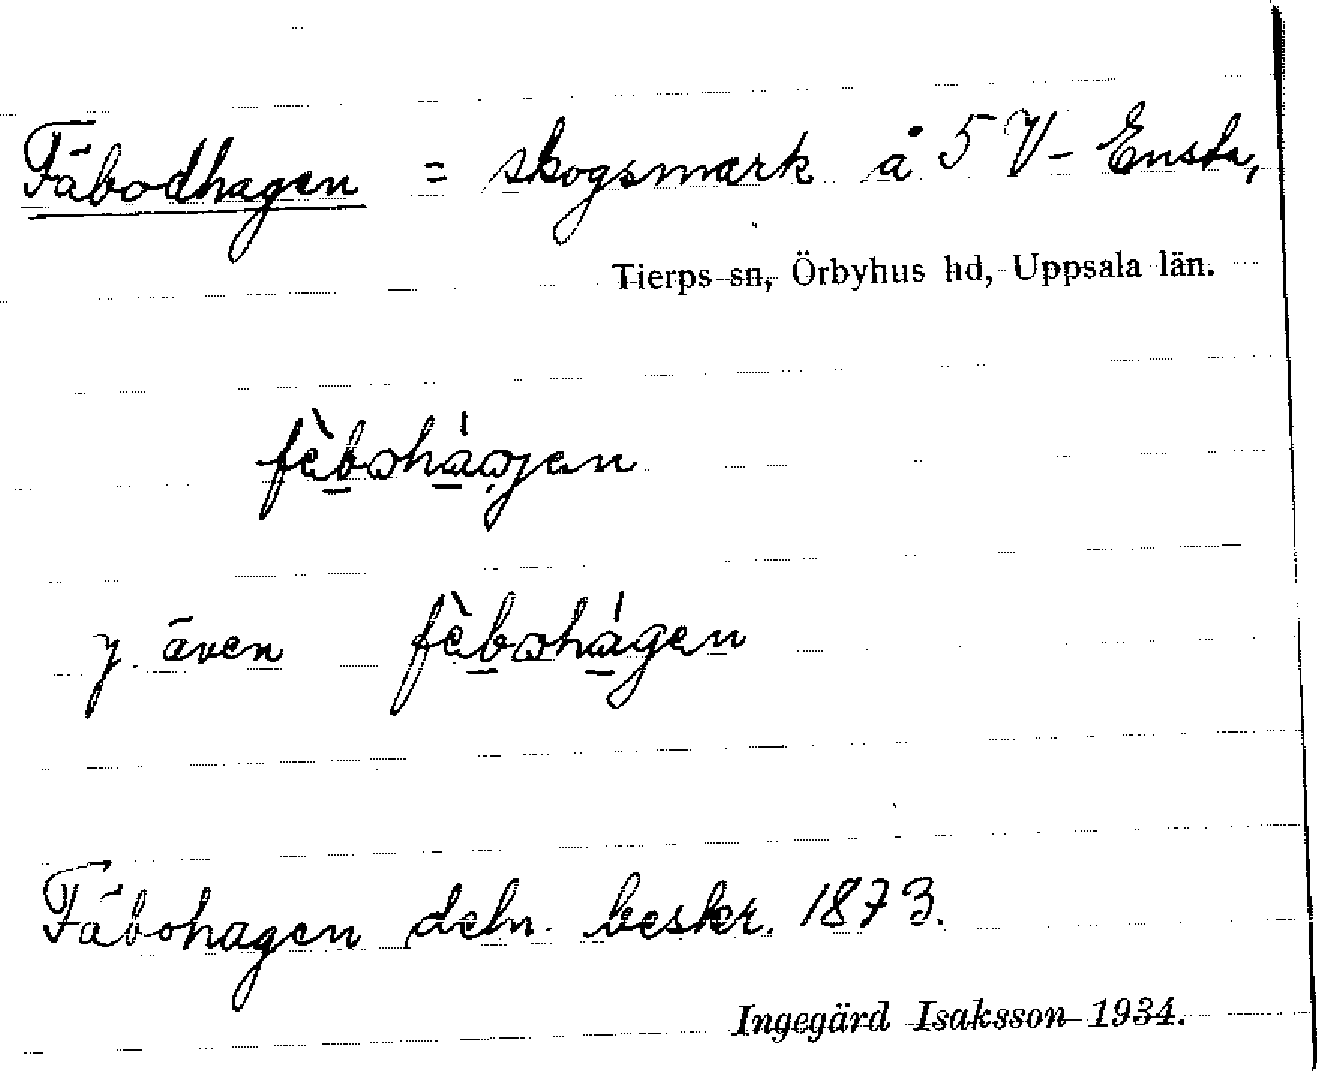 Fäbodhagen = skogsmark å 5 V-Ensta,
Tierps sn, Örbyhus hd, Uppsala län.
fèbɷhágen
y. även fèbɷhágen
Fäbohagen deln. beskr. 1873.
Ingegärd Isaksson 1934.